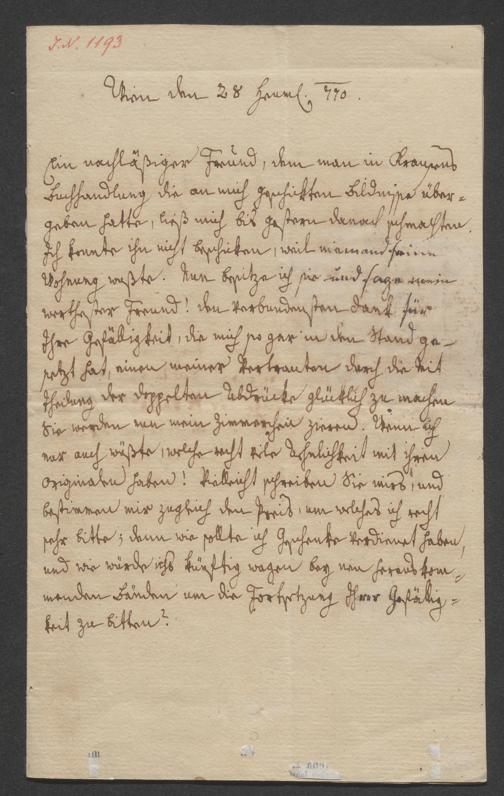 I.N. 1193
Wien den 28 Hornl. 770.
Ein nachläßiger Freund, dem man in Kraußens
Buchhandlung die an mich geschikten Bildnisse über-
geben hatte, ließ mich bis gestern darnach schmachten.
Ich konnte ihn nicht beschiken, weil niemand seine
Wohnung wußte. Nun besitze ich sie und sage mein
werthester Freund! den verbundensten Dank für
Ihre Gefälligkeit, die mich so gar in den Stand ge-
setzt hat, einen meiner Vertrauten durch die Mit
theilung der doppelten Abdrücke glücklich zu machen
Sie werden nun mein Zimmerchen zieren. Wenn ich
nur auch wüßte, welche recht viele Aehnlichkeit mit ihren
Originalen haben! Vielleicht schreiben Sie mirs, und
bestimmen mir zugleich den Preis, um welches ich recht
sehr bitte; denn wie sollte ich Geschenke verdienet haben,
und wie würde ichs künftig wagen bey neu herauskom-
menden Bänden um die Fortsetzung Ihrer Gefällig-
keit zu bitten?